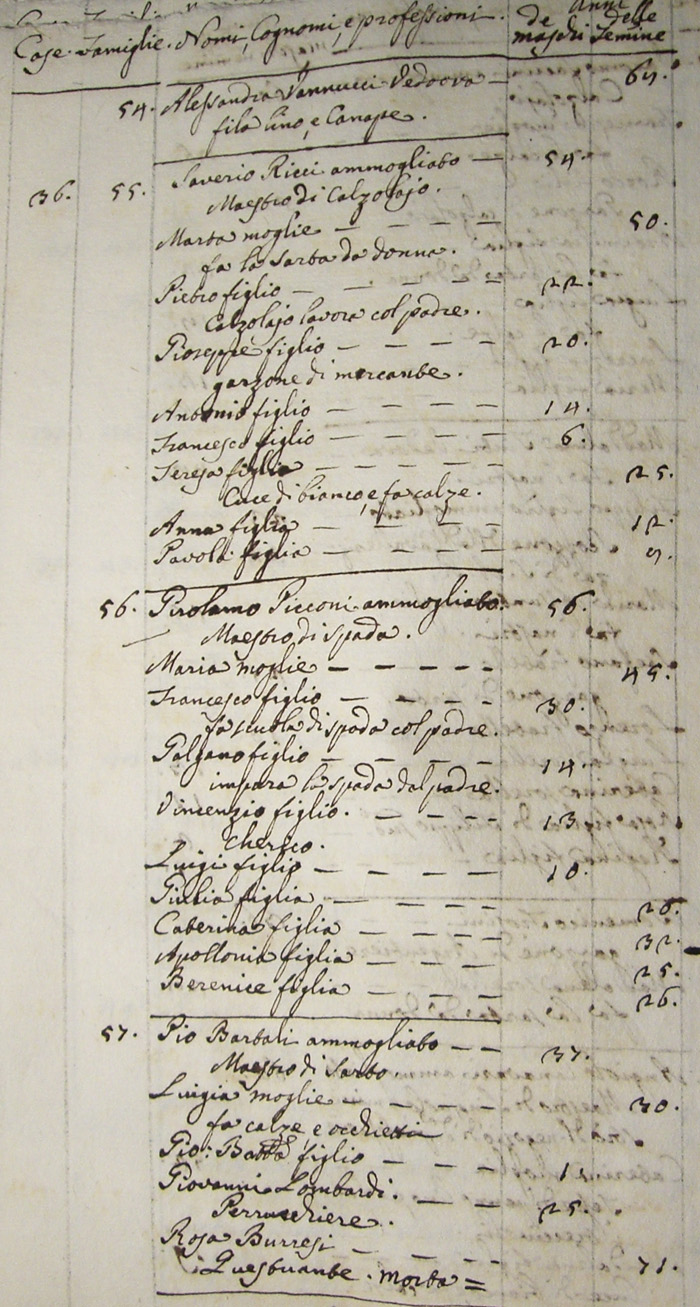 Anni
Case. Famiglie. Nomi, Cognomi, e professioni. de maschi delle Femine
54. Alessandra Vannucci Vedova — 69.
fila lino, e Canape.
36. 55. Saverio Ricci ammogliato — 54.
Maestro di Calzolajo.
Marta moglie — — — — 50.
fa la Sarta da donna.
Pietro figlio — — — — — 22.
Calzolajo lavora col padre.
Gioseppe figlio — — — — 20.
garzone di mercante.
Antonio figlio — — — — 14.
Francesco figlio — — — — 6.
Teresa figlia — — — — — 25.
Cuce di bianco, e fa calze.
Anna figlia — — — — 12.
Pavola figlia — — — — 9.
56. Girolamo Picconi ammogliato. 56.
Maestro di spada.
Maria moglie — — — — — 45.
Francesco figlio — — — — 30.
fa scuola di spada col padre.
Galgano figlio — — — — 14.
impara la spada dal padre.
Vincenzio figlio. — — — — 13.
Cherico.
Luigi figlio — — — — — 10.
Giulia figlia — — — — — 20.
Caterina figlia — — — — 32.
Apollonia figlia — — — — 25.
Berenice figlia — — — — 26.
57. Pio Bartali ammogliato — — 37.
Maestro di Sarto.
Luigia moglie — — — — — 30.
fa calze, e occhietti
Gio: Batta figlio — — — — 1.
Giovanni Lombardi. — — — 25.
Perrucchiere.
Rosa Burresi — — — — 71.
Questuante. morta =